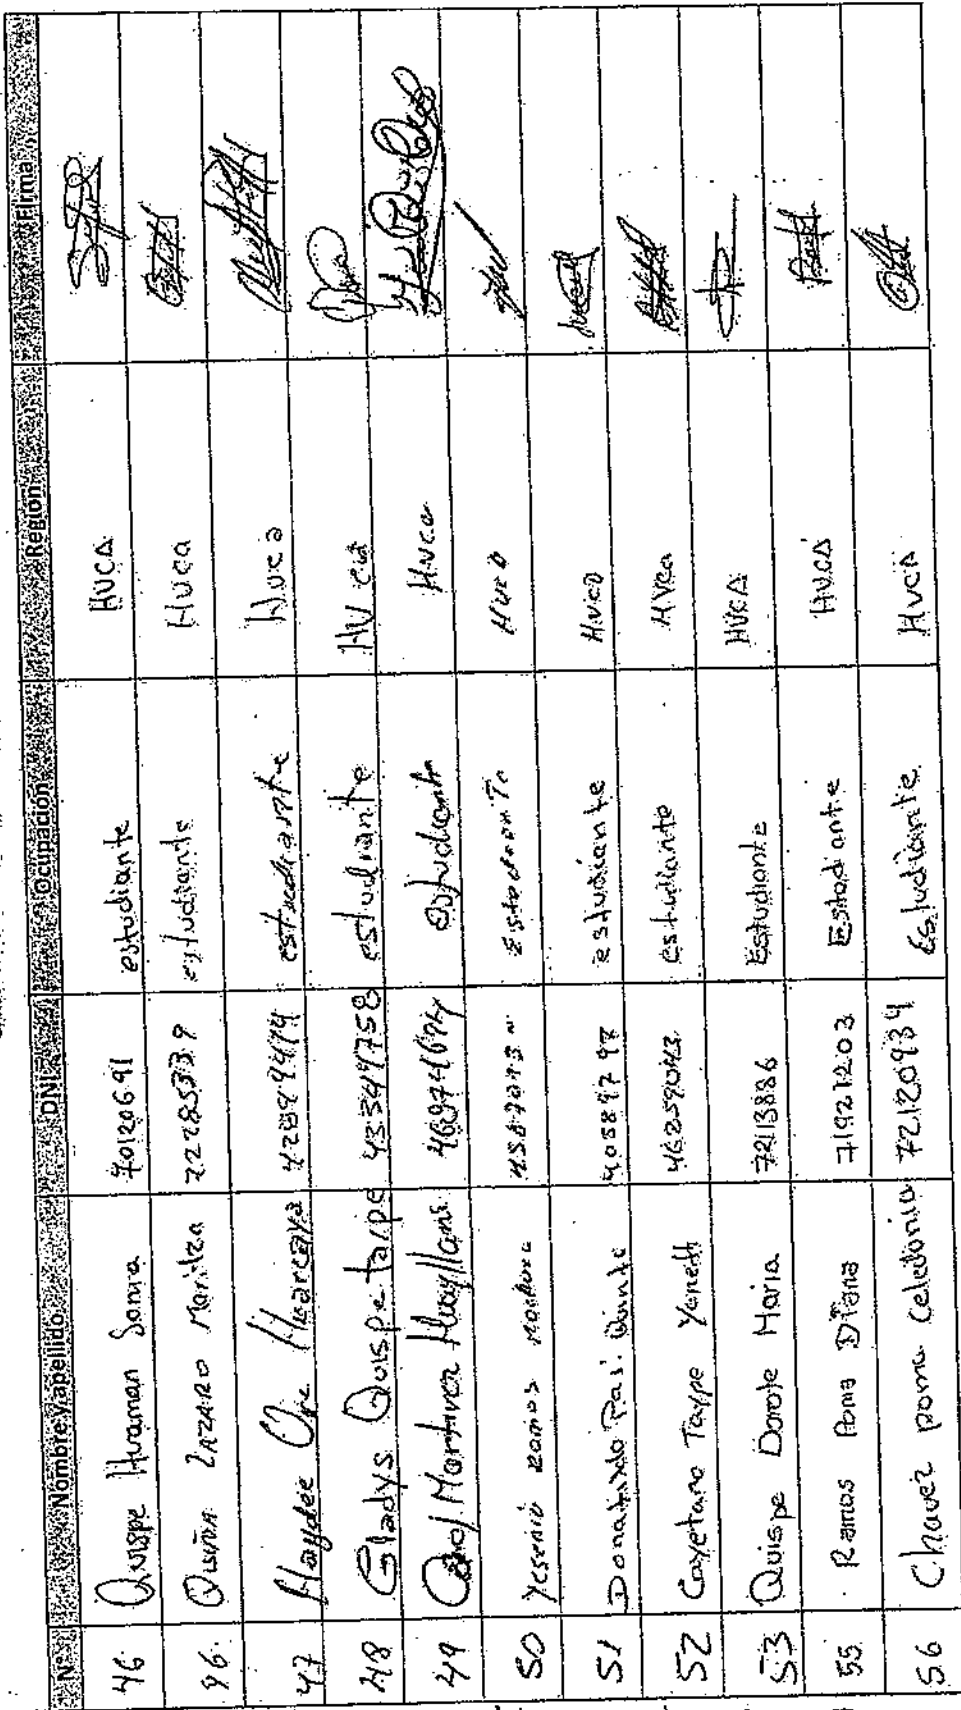 Nº Nombre y apellido DNI Ocupación Región Firma
46 Quispe Huaman Sonia 70120691 estudiante HVCA
46 Quiñon LAZARO Maritza 72285339 estudiante HUCA
47 Haydée Ore Huarcaya 42894414 estudiante Huca
48 Gladys Quispe taipe 43349758 estudiante HVca
49 Martinez Huayllani estudiante Hvca
50 Yesenia Ramos
51 Donato 40589797 estudiante HVCA
52 Cayetano Taype Yaneth 46259043 estudiante HVca
53 Quispe Dorote Maria 72113886 Estudiante HVCA
55 Ramos Poma Diana 71921203 Estudiante HVCA
56 Chavez poma Celedonia 72120934 Estudiante HvcA